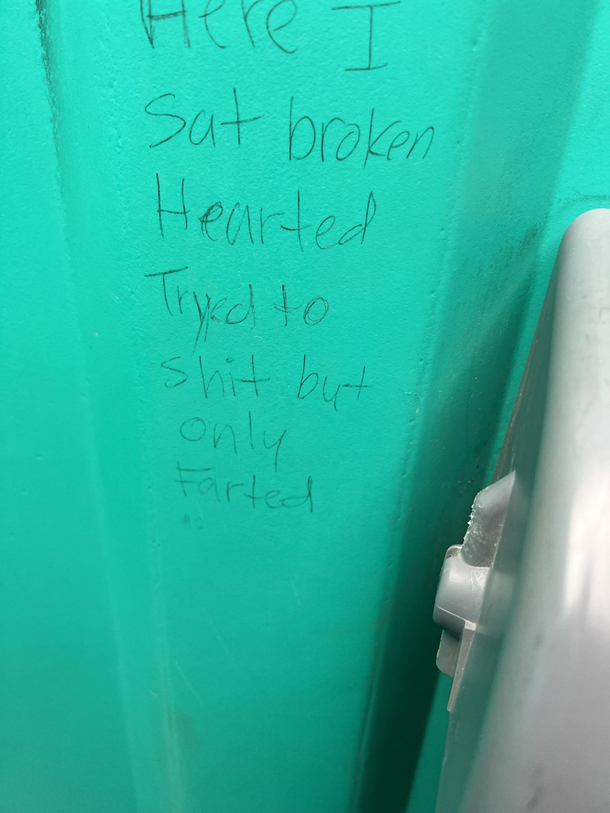 Here I
Sat broken
Hearted
Tryed to
Shit but
only
Farted